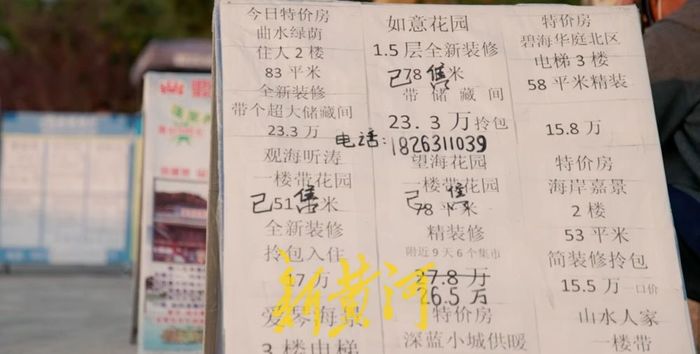 今日特价房
曲水绿荫
住人2楼
83平米
全新装修
带个超大储藏间
23.3万
观海听涛
一楼带花园
已售
51 米
全新装修
拎包入住
17万
爱琴海景
3楼电梯
如意花园
1.5层全新装修
已售
78 米
带储藏间
23.3万拎包
电话:18263111039
望海花园
一楼带花园
已售
78平米
精装修
附近9天6个集市
27.8万
26.5万
特价房
深蓝小城供暖
特价房
碧海华庭北区
电梯3楼
58平米精装
15.8万
特价房
海岸嘉景
2楼
53平米
简装修拎包
15.5万一口价
山水人家
一楼带
新黄河